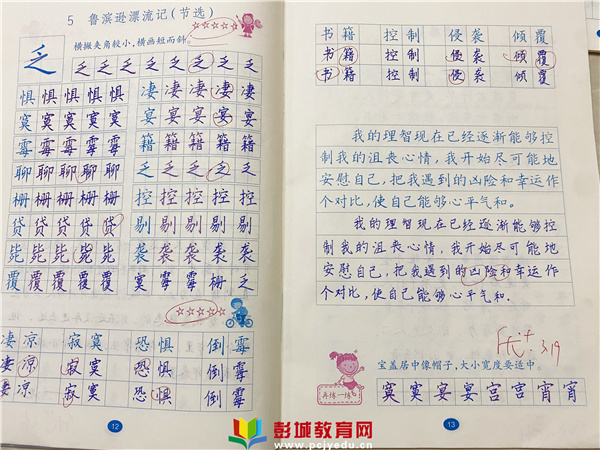 5 鲁滨逊漂流记(节选)
横撇夹角较小,横画短而斜。
乏 乏 乏 乏 乏 乏 乏 乏 乏
惧 惧 惧 惧 惧 凄 凄 凄 凄 凄
寞 寞 寞 寞 寞 宴 宴 宴 宴 宴
霉 霉 霉 霉 霉 籍 籍 籍 籍 籍
聊 聊 聊 聊 聊 乏 乏 乏 乏 乏
栅 栅 栅 栅 栅 控 控 控 控 控
贷 贷 贷 贷 贷 剔 剔 剔 剔 剔
毙 毙 毙 毙 毙 袭 袭 袭 袭 袭
覆 覆 覆 覆 覆 寞 霉 霉 栅 乏
凄 凉 寂 寞 恐 惧 倒 霉
凄 凉 寂 寞 恐 惧 倒 霉
凄 凉 寂 寞 恐 惧 倒 霉
12
书 籍 控 制 侵 袭 倾 覆
书 籍 控 制 侵 袭 倾 覆
书 籍 控 制 侵 袭 倾 覆
我的理智现在已经逐渐能够控
制我的沮丧心情,我开始尽可能地
安慰自己,把我遇到的凶险和幸运作
个对比,使自己能够心平气和。
我的理智现在已经逐渐能够控
制我的沮丧心情,我开始尽可能地
安慰自己,把我遇到的凶险和幸运作
个对比,使自己能够心平气和。
3.19
宝盖居中像帽子,大小宽度要适中。
再练一练
寞 寞 宴 宴 宫 宫 宵 宵
13
彭城教育网
www.pcjyedu.cn